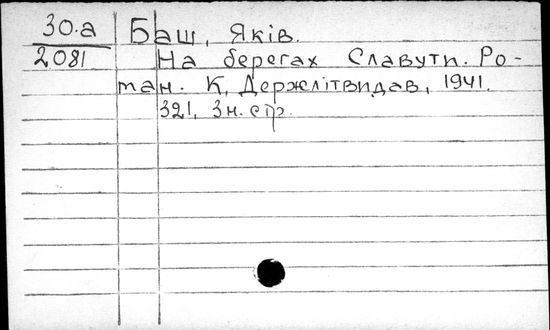 30.а Баш, Яків.
2081 На берегах Славути. Ро-
ман. К, Держлітвидав, 1941.
321, 3 н. стр.